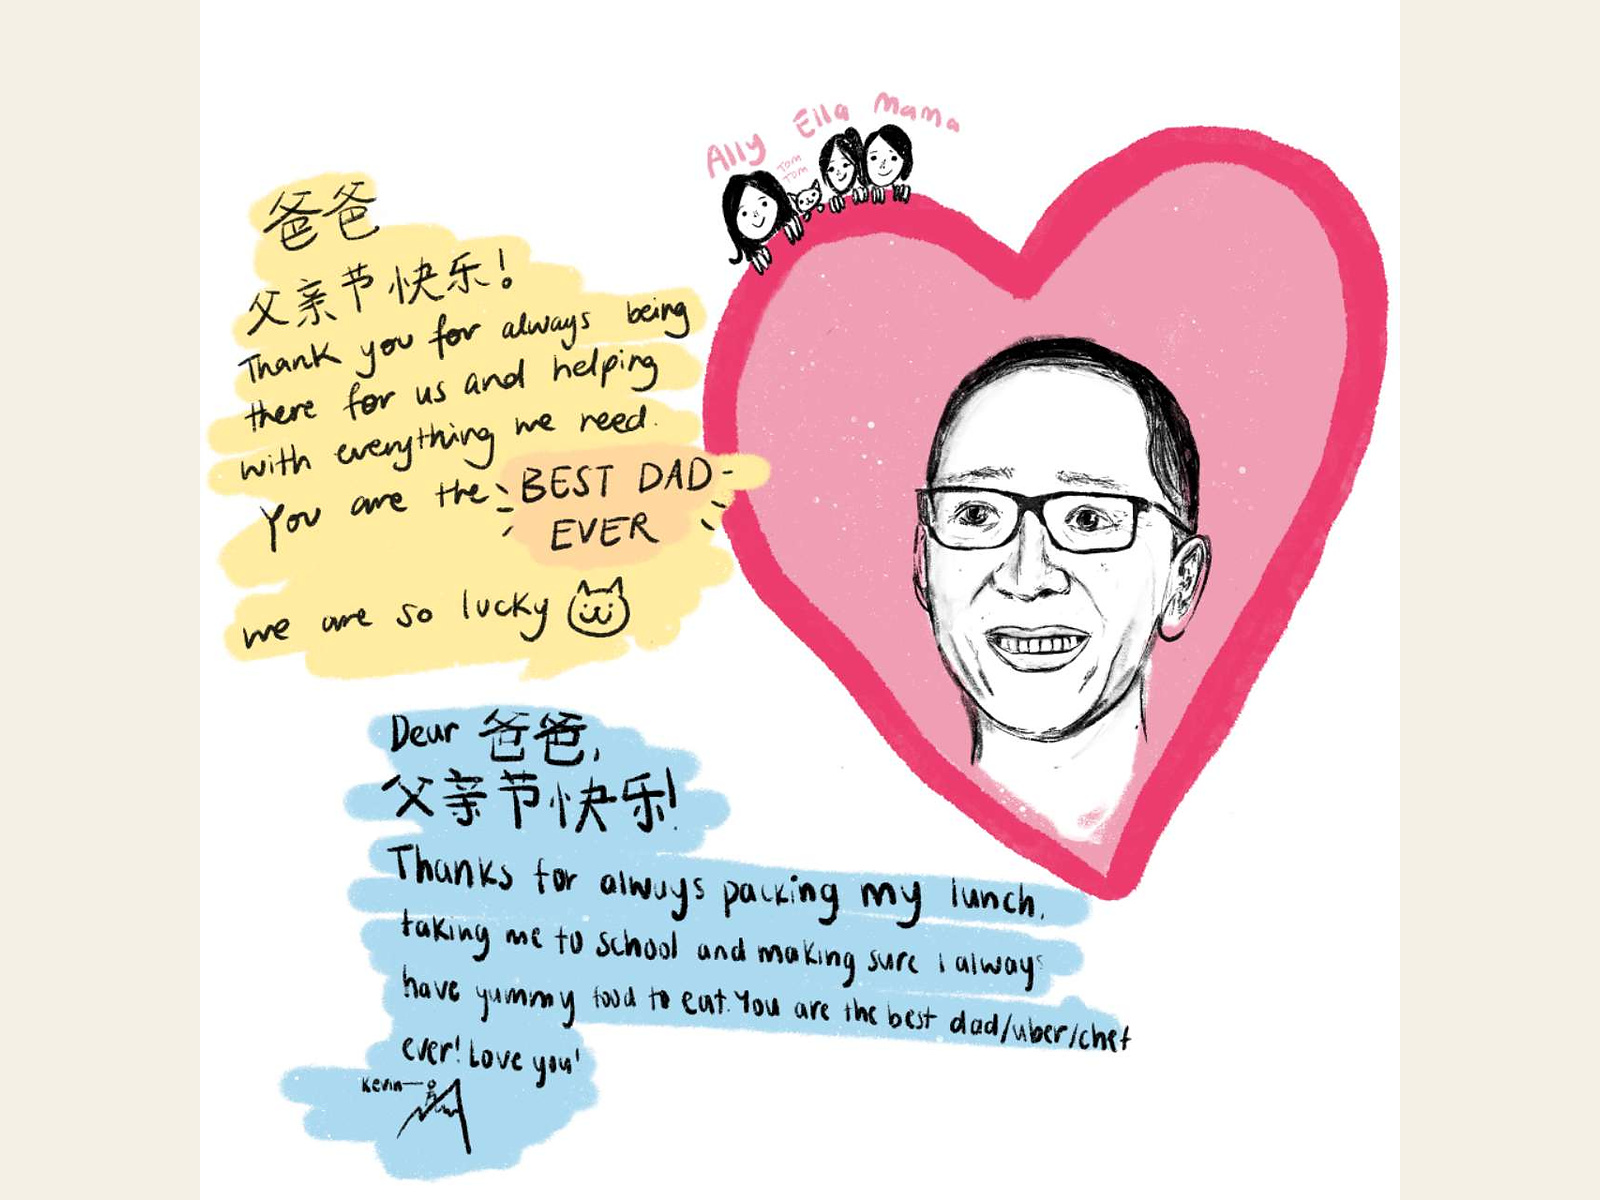 Ally Ella Mama
Tom
Tom
爸爸
父亲节快乐!
Thank you for always being
there for us and helping
with everything we need.
You are the BEST DAD
EVER
we are so lucky
Dear 爸爸,
父亲节快乐!
Thanks for always packing my lunch,
taking me to school and making sure i always
have yummy food to eat. You are the best dad/uber/chef
ever! Love you!
Kevin